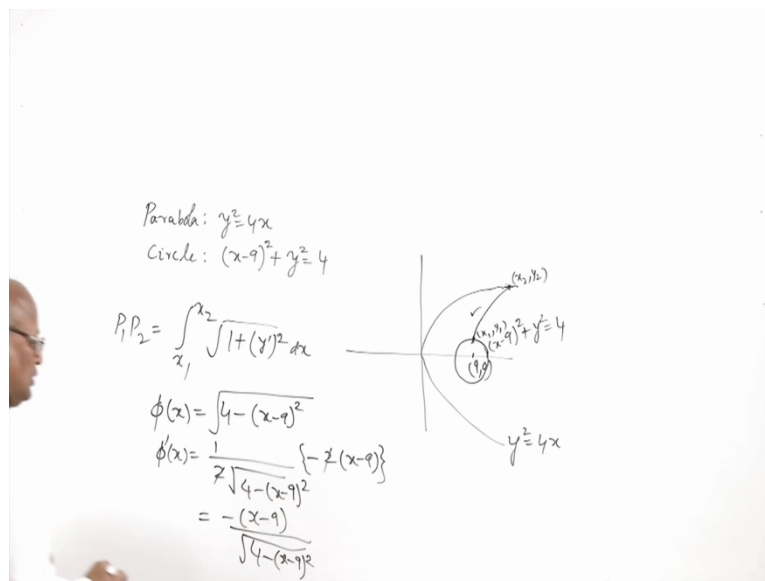 Parabola: y²=4x
Circle: (x-9)²+y²=4
P₁P₂ = ∫_{x₁}^{x₂} √(1+(y')²) dx
ϕ(x) = √(4-(x-9)²)
ϕ'(x) = 1/(2√(4-(x-9)²)) {-2(x-9)}
= -(x-9)/√(4-(x-9)²)
(x₂,y₂)
(x₁,y₁)
(x-9)²+y²=4
y²=4x